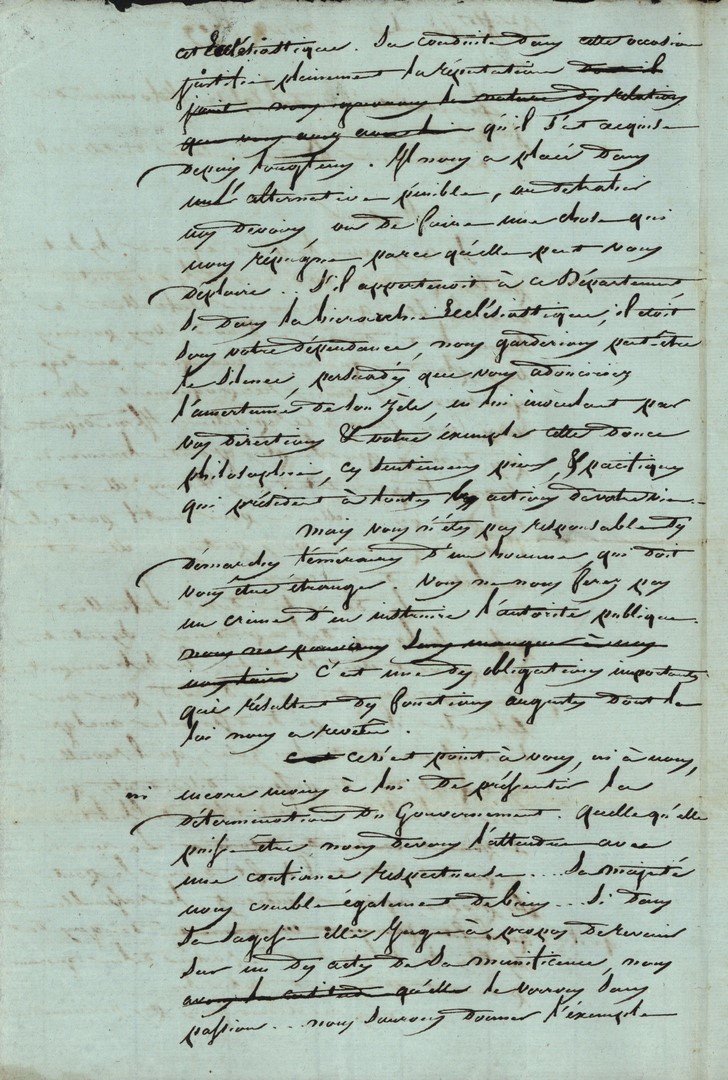 cet Ecclésiastique. Sa conduite dans cette occasion
justifie pleinement la réputation dont il
jouit. nous ignorons la nature des relations
que vous avez avec lui qu'il s'est acquise
depuis longtems. Il nous a placé dans
une alternative pénible, ou de trahir
nos devoirs ou de faire une chose qui
nous répugne parce qu'elle peut vous
déplaire... S'il appartenoit à ce Département
Si dans la hierarchie Ecclésiastique, il étoit
sous votre dépendance, nous garderions peut-être
le silence, persuadés que vous adouciriez
l'amertume de son zèle, en lui inoculant par
vos directions & votre éxemple cette douce
philosophie, ces sentimens pieux & pacifiques
qui président à toutes les actions de votre vie.
mais vous n'êtes pas responsable des
démarches téméraires d'un homme, qui doit
vous être étranger. Vous ne nous ferez pas
un crime d'en instruire l'autorité publique.
nous ne pouvions sans manquer à nos
c'est une des obligations importantes
qui résultent des fonctions augustes dont la
loi nous a revêtu.
ce n'est point à vous, ni à nous,
ni encore moins à lui de préssentir la
détermination du Gouvernement. quelle qu'elle
puisse être, nous devons l'attendre avec
une confiance respectueuse... Sa majesté
nous comble également de biens... Si dans
sa sagesse elle juge à propos de revenir
sur un des actes de sa munificence, nous
avons la certitude qu'elle le verrons sans
passion... nous saurons donner l'éxemple